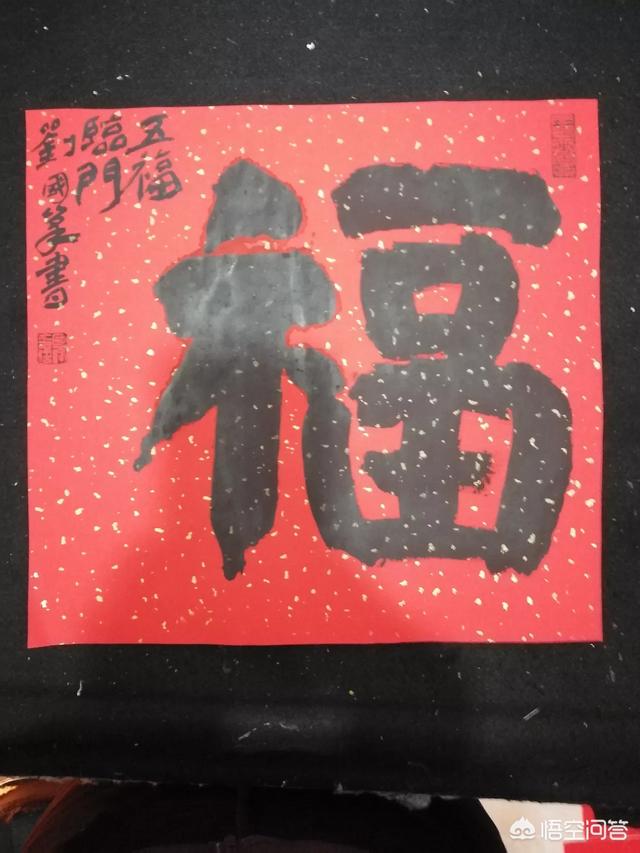 福
五福
臨門
劉國笔書
悟空问答